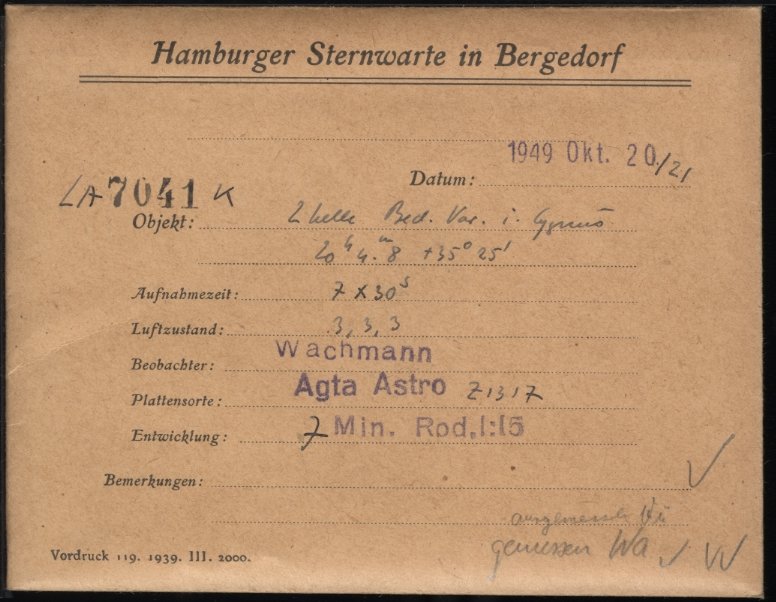 Hamburger Sternwarte in Bergedorf
1949 Okt. 20/21
Datum:
LA 7041 K
Objekt: 2 helle Bed. Var. i. Cygnus
20h 4.m8 +35° 25'
Aufnahmezeit: 7 x 30s
Luftzustand: 3, 3, 3
Beobachter: Wachmann
Plattensorte: Agfa Astro Z1317
Entwicklung: 7 Min. Rod. 1:15
Bemerkungen:
gemessen Wa
Vordruck 119. 1939. III. 2000.